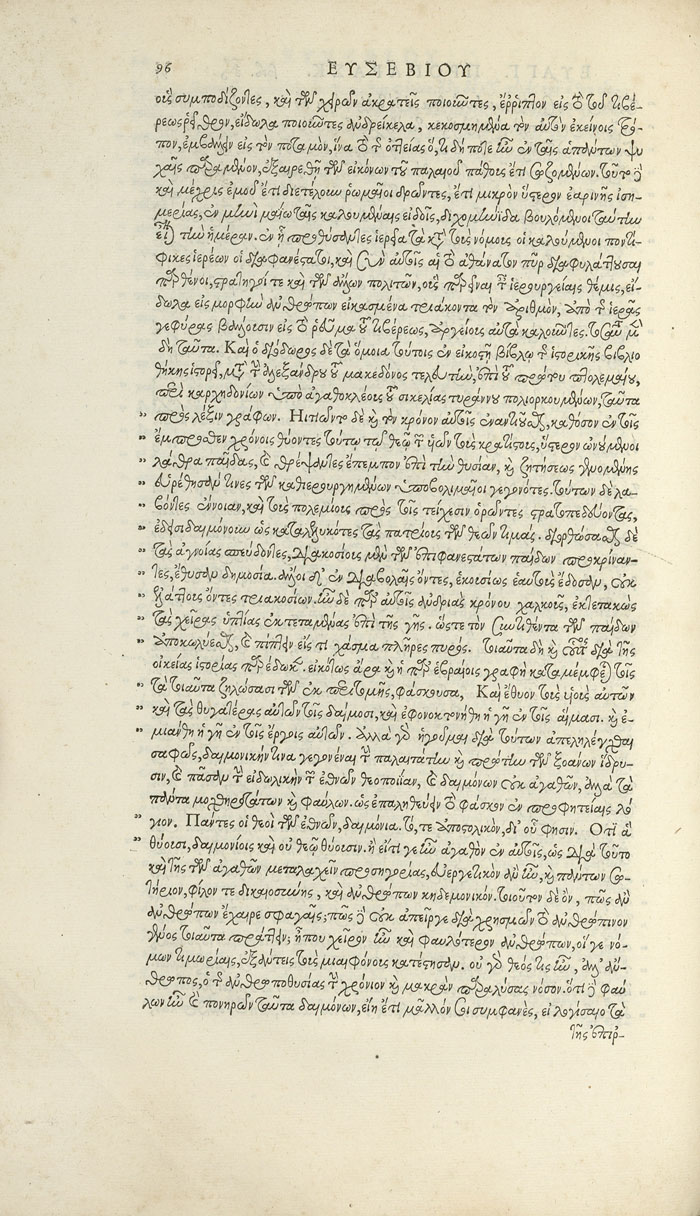 96 ΕΥΣΕΒΙΟΥ
οις συμποδίζοντες, καὶ τῶν χειρῶν ἀκρατεῖς ποιοῦντες, ἐρρίπτον εἰς τὸ τοῦ τιβέ-
ρεως ῥεῖθρον, εἴδωλα ποιοῦντες ἀνδρείκελα, κεκοσμημένα τὸν αὐτὸν ἐκείνοις τρό-
πον, ἐμβαλεῖν εἰς τὸν ποταμὸν, ἵνα τὸ τῆς ὀτείας ὅ,τι δή ποτε ἦν ἐν ταῖς ἁπάντων ψυ
χαῖς παράμονον, ἐξαιρεθῇ τῶν εἰκόνων τοῦ παλαιοῦ πάθους ἔτι σωζομένων. τοῦτο δὲ
καὶ μέχρις ἐμοῦ ἔτι διετέλουν ῥωμαῖοι δρῶντες, ἔτι μικρὸν ὕστερον ἐαρινῆς ἰση-
μερίας, ἐν μηνὶ μαΐω ταῖς καλουμέναις εἰδοῖς, διχομηνίδα βουλόμενοι ταύτην
εἶναι τὴν ἡμέραν. ἐν ᾗ προθύσαντες ἱερεῖα τὰ κατὰ τοὺς νόμους οἱ καλούμενοι ποντί-
φικες ἱερέων οἱ διαφανέστατοι, καὶ σὺν αὐτοῖς αἱ τὸ ἀθάνατον πῦρ διαφυλάττουσαι
παρθένοι, στρατηγοί τε καὶ τῶν ἄλλων πολιτῶν, οἷς παρεῖναι ταῖς ἱερουργείαις θέμις, εἴ-
δωλα εἰς μορφὴν ἀνθρώπων εἰκασμένα τριάκοντα τὸν ἀριθμὸν, ἀπὸ τῆς ἱερᾶς
γεφύρας βάλλουσιν εἰς τὸ ῥεῦμα τοῦ τιβέρεως, ἀργείους αὐτὰ καλοῦντες. τοσαῦτα μὲν
δὴ ταῦτα. Καὶ ὁ διόδωρος δὲ τὰ ὅμοια τούτοις ἐν εἰκοστῇ βίβλῳ τῆς ἱστορικῆς βιβλιο
θήκης ἱστορεῖ, μετὰ τὴν ἀλεξάνδρου τοῦ μακεδόνος τελευτὴν, ἐπὶ τοῦ πρώτου πτολεμαίου,
περὶ καρχηδονίων ὑπὸ ἀγαθοκλέους τοῦ σικελίας τυράννου πολιορκουμένων, ταῦτα
πρὸς λέξιν γράφων. Ἡτιῶντο δὲ καὶ τὸν κρόνον αὐτοῖς ἐναντιοῦσθαι, καθόσον ἐν τοῖς
ἔμπροσθεν χρόνοις θύοντες τούτω τῷ θεῷ τῶν υἱῶν τοὺς κρατίστους, ὕστερον ὠνούμενοι
λάθρα παῖδας, καὶ θρέψαντες ἔπεμπον ἐπὶ τὴν θυσίαν, καὶ ζητήσεως γενομένης
εὑρέθησάν τινες τῶν καθιερουργημένων ὑποβολιμαῖοι γεγονότες. τούτων δὲ λα-
βόντες ἔννοιαν, καὶ τοὺς πολεμίους πρὸς τοῖς τείχεσιν ὁρῶντες στρατοπεδεύοντας,
ἐδεισιδαιμόνουν ὡς καταλελυκότες τὰς πατρίους τῶν θεῶν τιμάς. διορθώσασθαι δὲ
τὰς ἀγνοίας σπεύδοντες, διακοσίους μὲν τῶν ἐπιφανεστάτων παίδων προκρίναν-
τες, ἔθυσαν δημοσία. ἄλλοι δ' ἐν διαβολαῖς ὄντες, ἑκουσίως ἑαυτοὺς ἔδοσαν, οὐκ
ἐλάττους ὄντες τριακοσίων. ἦν δὲ παρ' αὐτοῖς ἀνδριὰς κρόνου χαλκοῦς, ἐκτετακὼς
τὰς χεῖρας ὑπτίας ἐκτεταμένας ἐπὶ τῆς γῆς. ὥστε τὸν ἐπιτεθέντα τῶν παίδων
ἀποκυλίεσθαι, καὶ πίπτειν εἴς τι χάσμα πλῆρες πυρός. τοιαῦτα δὴ καὶ οὗτος διὰ τῆς
οἰκείας ἱστορίας παρέδωκεν. εἰκότως ἄρα καὶ ἡ παρ' ἑβραίοις γραφὴ καταμέμφεται τοῖς
τὰ τοιαῦτα ζηλώσασι τῶν ἐκ περιτομῆς, φάσκουσα, Καὶ ἔθυον τοὺς υἱοὺς αὐτῶν
καὶ τὰς θυγατέρας αὐτῶν τοῖς δαίμοσι, καὶ ἐφονοκτονήθη ἡ γῆ ἐν τοῖς αἵμασι. καὶ ἐ-
μιάνθη ἡ γῆ ἐν τοῖς ἔργοις αὐτῶν. Ἀλλὰ γὰρ ἡγοῦμαι διὰ τούτων ἀπεληλέγχθαι
σαφῶς, δαιμονικήν τινα γεγονέναι τὴν παλαιτάτην καὶ πρώτην τῶν ξοάνων ἵδρυ-
σιν, καὶ πᾶσαν τὴν εἰδωλικὴν τῶν ἐθνῶν θεοποιΐαν, καὶ δαιμόνων οὐκ ἀγαθῶν, ἀλλὰ τὰ
πάντα μοχθηροτάτων καὶ φαύλων. ὡς ἐπαληθεύειν τὸ φάσκον ἐν προφητείαις λό
γιον. Πάντες οἱ θεοὶ τῶν ἐθνῶν, δαιμόνια. τό, τε ἀποστολικὸν, δι' οὗ φησιν. Ὅτι ἃ
θύουσι, δαιμονίοις καὶ οὐ θεῷ θύουσιν. ἢ εἴ τί γε ἦν ἀγαθὸν ἐν αὐτοῖς, ὡς διὰ τοῦτο
καὶ τῆς τῶν ἀγαθῶν μεταλαχεῖν προσηγορίας, εὐεργετικὸν ἂν ἦν, καὶ πάντων σω-
τήριον, φίλον τε δικαιοσύνης, καὶ ἀνθρώπων κηδεμονικόν. τοιοῦτον δὲ ὂν, πῶς ἂν
ἀνθρώπων ἔχαιρε σφαγαῖς; πῶς δὲ οὐκ ἀπεῖργε διὰ χρησμῶν τὸ ἀνθρώπινον
γένος τοιαῦτα πράττειν; ἤπου χεῖρον ἦν καὶ φαυλότερον ἀνθρώπων, οἵ γε νό-
μων τιμωρίαις, ἐξάντεις τοὺς μιαιφόνους κατέστησαν. οὐ γὰρ θεός τις ἦν, ἀλλ' ἄν-
θρωπος, ὁ τῆς ἀνθρωποθυσίας τὴν χρόνιον καὶ μακρὰν παραλύσας νόσον. ὅτι δὲ φαύ
λων ἦν καὶ πονηρῶν ταῦτα δαιμόνων, εἴη ἔτι μᾶλλόν σοι συμφανὲς, εἰ λογίσαιο τὰ
τῆς ἐπιρ-